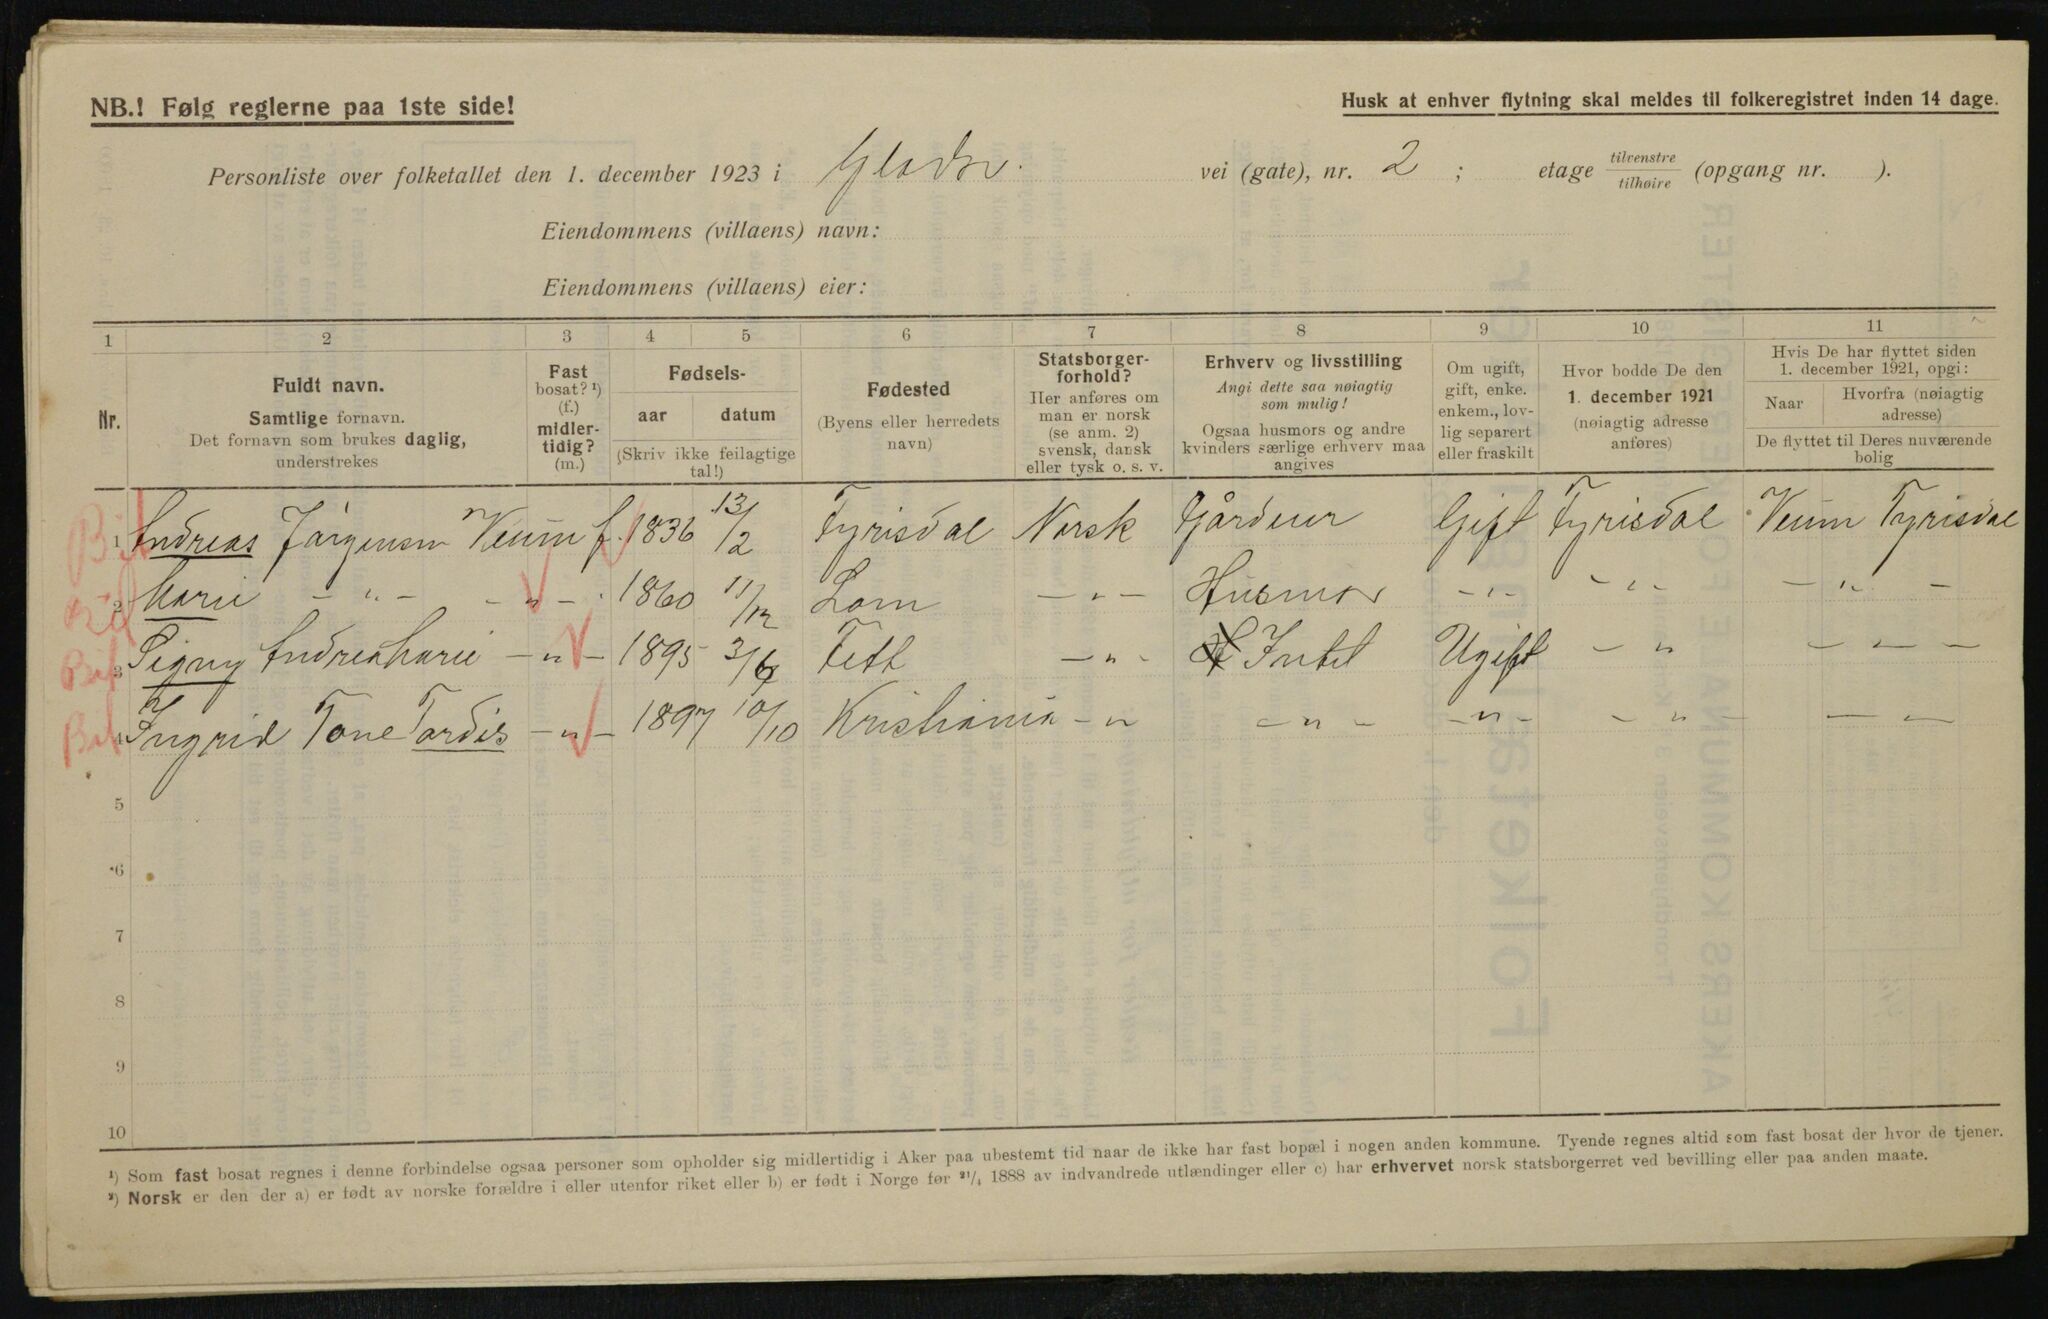 NB.! Følg reglerne paa 1ste side!
Husk at enhver flytning skal meldes til folkeregistret inden 14 dage.
Personliste over folketallet den 1. december 1923 i vei (gate), nr. 2 ; etage tilvenstre/tilhøire (opgang nr. ).
Eiendommens (villaens) navn:
Eiendommens (villaens) eier:
1 2 3 4 5 6 7 8 9 10 11
Nr.
Fuldt navn.
Samtlige fornavn.
Det fornavn som brukes daglig,
understrekes
Fast
bosat? ¹)
(f.)
midler-
tidig?
(m.)
Fødsels-
aar datum
(Skriv ikke feilagtige
tal!)
Fødested
(Byens eller herredets
navn)
Statsborger-
forhold?
Her anføres om
man er norsk
(se anm. 2)
svensk, dansk
eller tysk o. s. v.
Erhverv og livsstilling
Angi dette saa nøiagtig
som mulig!
Ogsaa husmors og andre
kvinders særlige erhverv maa
angives
Om ugift,
gift, enke.
enkem., lov-
lig separert
eller fraskilt
Hvor bodde De den
1. december 1921
(nøiagtig adresse
anføres)
Hvis De har flyttet siden
1. december 1921, opgi:
Naar
Hvorfra (nøiagtig
adresse)
De flyttet til Deres nuværende
bolig
1 Andreas Jörgensen Veum f. 1836 13/2 Fyrisdal Norsk Gift Fyrisdal Veum Fyrisdal
2 Marie - " - - " - 1860 11/12 Lom - " - Husmor - " - - " - - " -
3 Signy Andrea Marie - " - 1895 3/6 Fett - " - Intet Ugift - " - - " -
4 Ingrid Tone Tordis - " - 1897 10/10 Kristiania - " - " - - " - - " - - -
5
6
7
8
9
10
¹) Som fast bosat regnes i denne forbindelse ogsaa personer som opholder sig midlertidig i Aker paa ubestemt tid naar de ikke har fast bopæl i nogen anden kommune. Tyende regnes altid som fast bosat der hvor de tjener.
²) Norsk er den der a) er født av norske forældre i eller utenfor riket eller b) er født i Norge før 21/4 1888 av indvandrede utlændinger eller c) har erhvervet norsk statsborgerret ved bevilling eller paa anden maate.